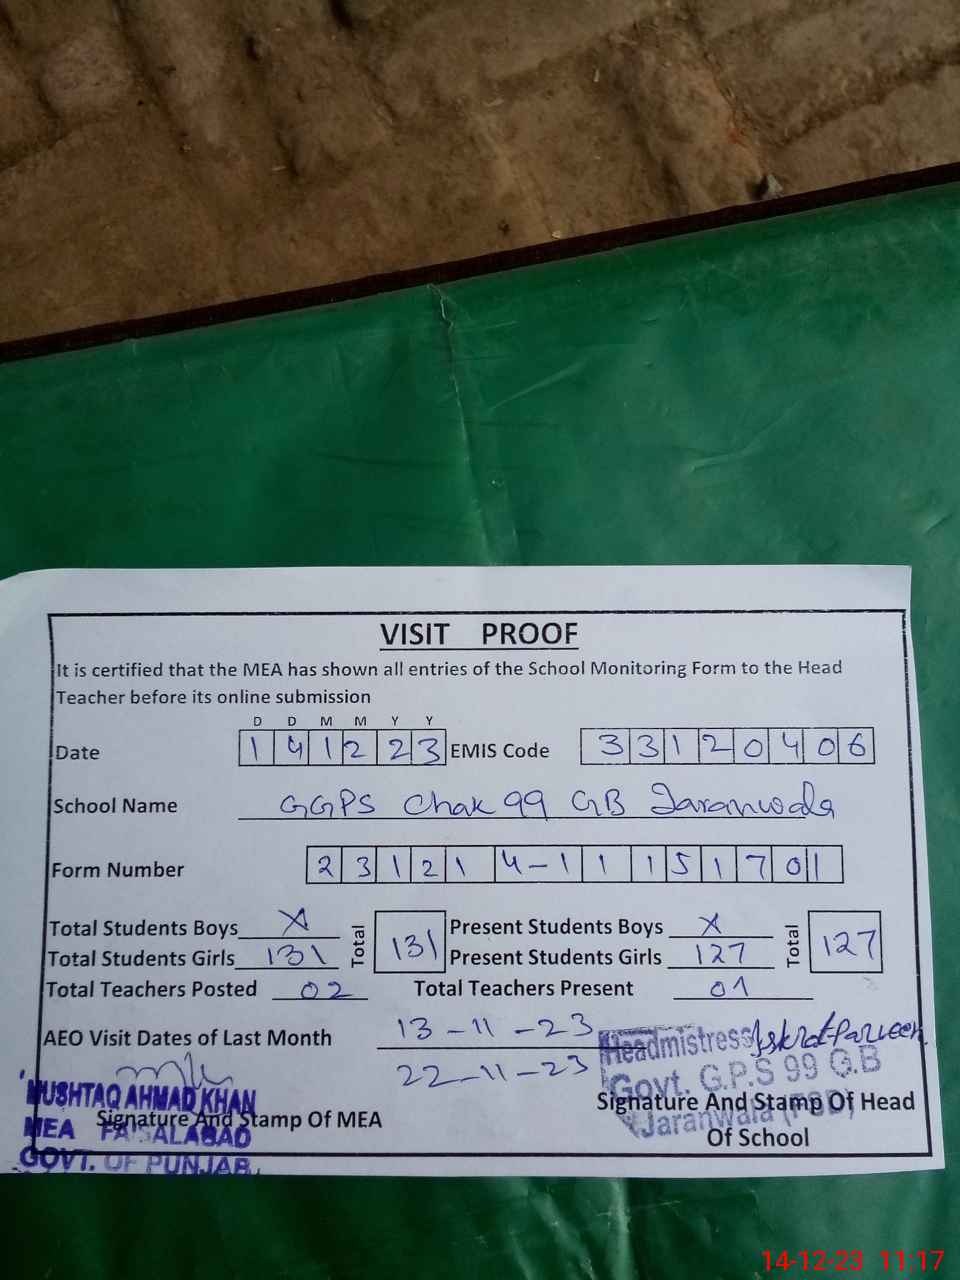 VISIT PROOF
It is certified that the MEA has shown all entries of the School Monitoring Form to the Head
Teacher before its online submission
D D M M Y Y
Date 1 4 1 2 2 3 EMIS Code 3 3 1 2 0 4 0 6
School Name GGPS Chak 99 GB Jaranwala
Form Number 2 3 1 2 1 4-1 1 1 5 1 7 0 1
Total Students Boys X Total 131 Present Students Boys X Total 127
Total Students Girls 131 Present Students Girls 127
Total Teachers Posted 02 Total Teachers Present 01
AEO Visit Dates of Last Month 13-11-23
22-11-23
Headmistress
Govt. G.P.S 99 G.B
Jaranwala (FSD)
Signature And Stamp Of Head
Of School
MUSHTAQ AHMAD KHAN
MEA FAISALABAD
GOVT. OF PUNJAB
Signature And Stamp Of MEA
14-12-23 11:17